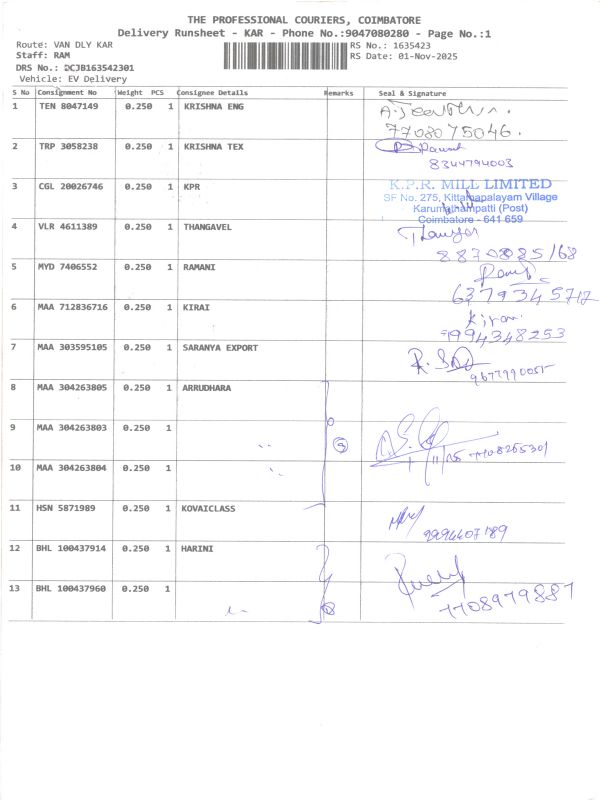 THE PROFESSIONAL COURIERS, COIMBATORE
Delivery Runsheet - KAR - Phone No.:9047080280 - Page No.:1
Route: VAN DLY KAR RS No.: 1635423
Staff: RAM RS Date: 01-Nov-2025
DRS No.: DCJB163542301
Vehicle: EV Delivery
S No Consignment No Weight PCS Consignee Details Remarks Seal & Signature
1 TEN 8047149 0.250 1 KRISHNA ENG
7708075046.
2 TRP 3058238 0.250 1 KRISHNA TEX
8344794003
3 CGL 20026746 0.250 1 KPR K.P.R. MILL LIMITED
SF No. 275, Kittampalayam Village
Karumathampatti (Post)
Coimbatore - 641 659
4 VLR 4611389 0.250 1 THANGAVEL
5 MYD 7406552 0.250 1 RAMANI
6379345717
6 MAA 712836716 0.250 1 KIRAI
9994348253
7 MAA 303595105 0.250 1 SARANYA EXPORT
9677990055
8 MAA 304263805 0.250 1 ARRUDHARA
9 MAA 304263803 0.250 1 " 3
7708265301
10 MAA 304263804 0.250 1 "
11 HSN 5871989 0.250 1 KOVAICLASS
9994407789
12 BHL 100437914 0.250 1 HARINI
13 BHL 100437960 0.250 1 "
7708979887